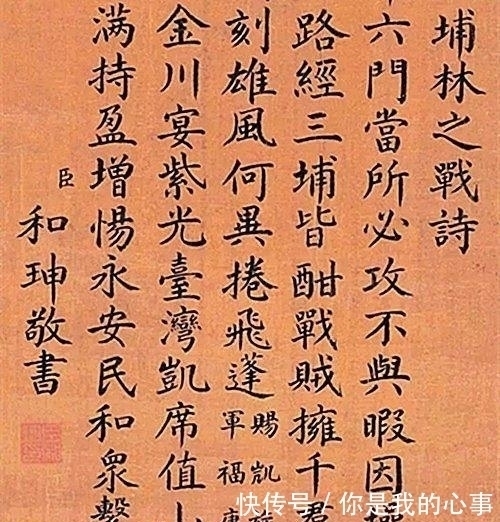 埔林之戰詩
六門當所必攻不與暇因
路經三埔皆酣戰賊擁千
刻雄風何異捲飛蓬
賜凱
軍福
金川宴紫光臺灣凱席值
满持盈增惕永安民和衆繫
臣和珅敬書
快传号 / 你是我的心事